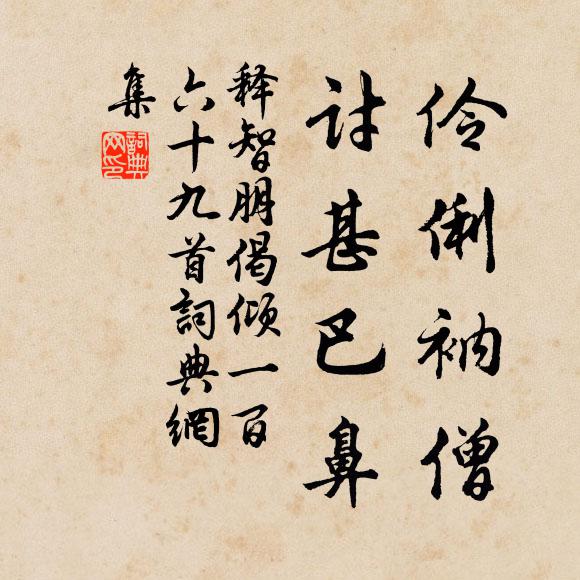 伶俐衲僧
讨甚巴鼻
释智朋偈倾一百
六十九首詞典網
集
詞典網印